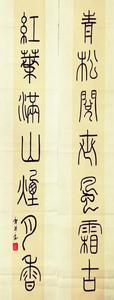 青松閱世風霜古
紅葉滿山煙月香